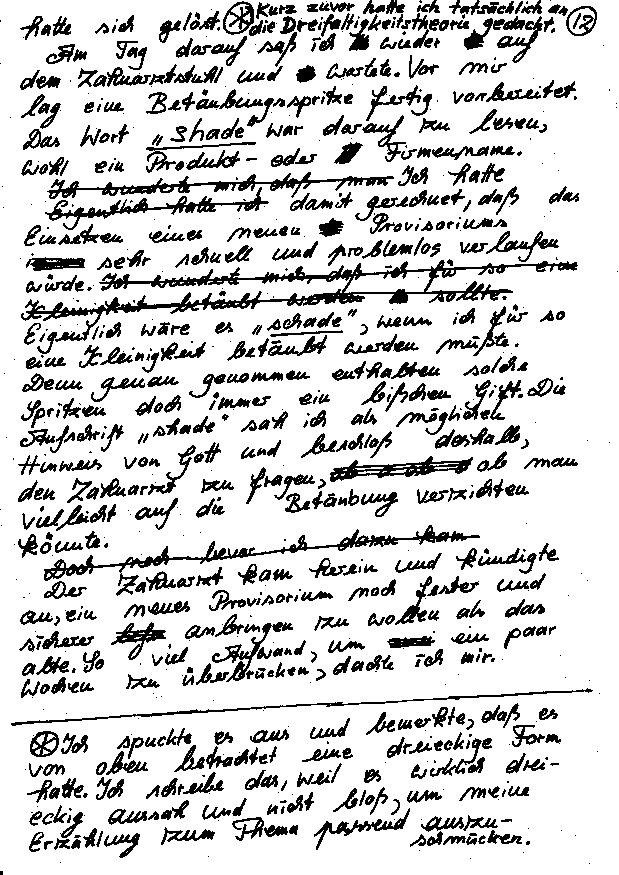 hatte sich gelöst. ⊛ Kurz zuvor hatte ich tatsächlich an die Dreifaltigkeitstheorie gedacht. 12
Am Tag darauf saß ich wieder auf
dem Zahnarztstuhl und wartete. Vor mir
lag eine Betäubungsspritze fertig vorbereitet.
Das Wort „shade" war darauf zu lesen,
wohl ein Produkt- oder Firmenname.
Ich wunderte mich, daß man Ich hatte
Eigentlich hatte ich damit gerechnet, daß das
Einsetzen eines neuen Provisoriums
sehr schnell und problemlos verlaufen
würde. Ich wunderte mich, daß ich für so eine
Kleinigkeit betäubt werden sollte.
Eigentlich wäre es „schade", wenn ich für so
eine Kleinigkeit betäubt werden müßte.
Denn genau genommen enthalten solche
Spritzen doch immer ein bißchen Gift. Die
Aufschrift „shade" sah ich als möglichen
Hinweis von Gott und beschloß deshalb,
den Zahnarzt zu fragen, ob man
vielleicht auf die Betäubung verzichten
könnte.
Doch noch bevor ich dazu kam
Der Zahnarzt kam herein und kündigte
an, ein neues Provisorium noch fester und
sicherer anbringen zu wollen als das
alte. So viel Aufwand, um ein paar
Wochen zu überbrücken, dachte ich mir.
⊛ Ich spuckte es aus und bemerkte, daß es
von oben betrachtet eine dreieckige Form
hatte. Ich schreibe das, weil es wirklich drei-
eckig aussah und nicht bloß, um meine
Erzählung zum Thema passend auszu-
schmücken.